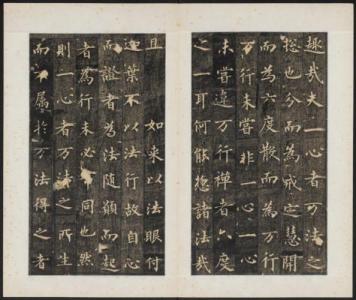 趣哉夫一心者万法之
揔也分而為戒定慧開
而為六度散而為万行
万行未嘗非一心一心
未嘗違万行禪者六度
之一耳何能揔諸法哉
且如來以法眼付
迦葉不以法行故自心
而證者為法隨願而起
者為行未必同也然
則一心者万法之所生
而不属於万法得之者